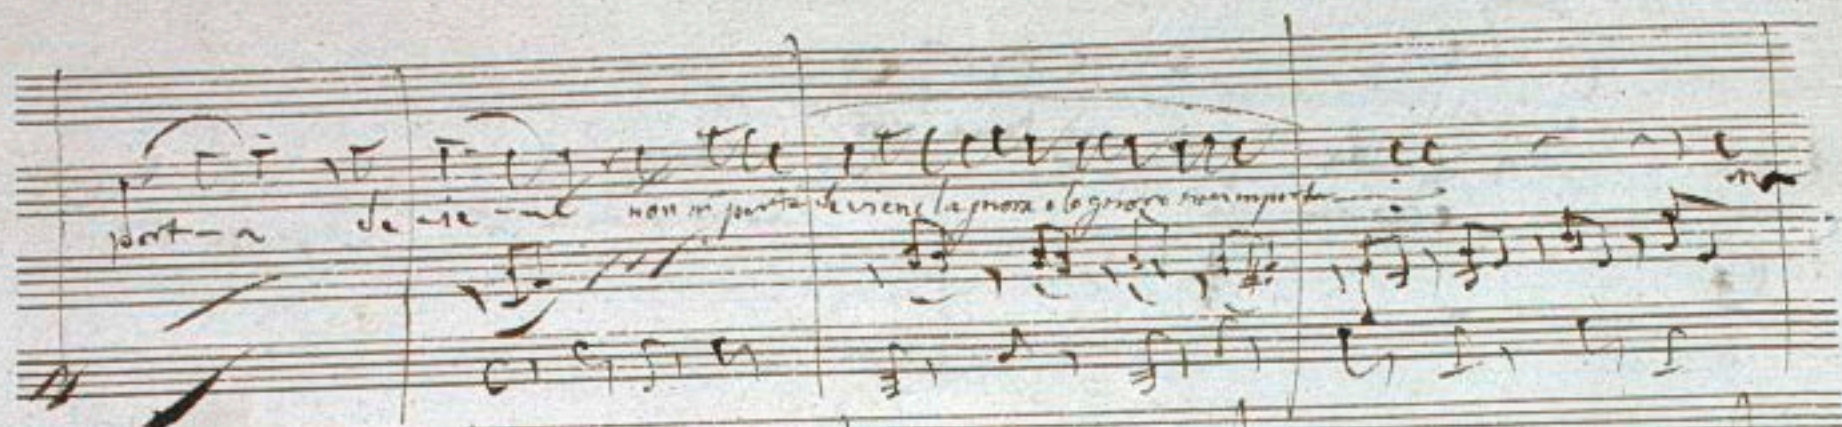 port - a se vie - ne non importa se viene la gnora o lo gnore non importa
non